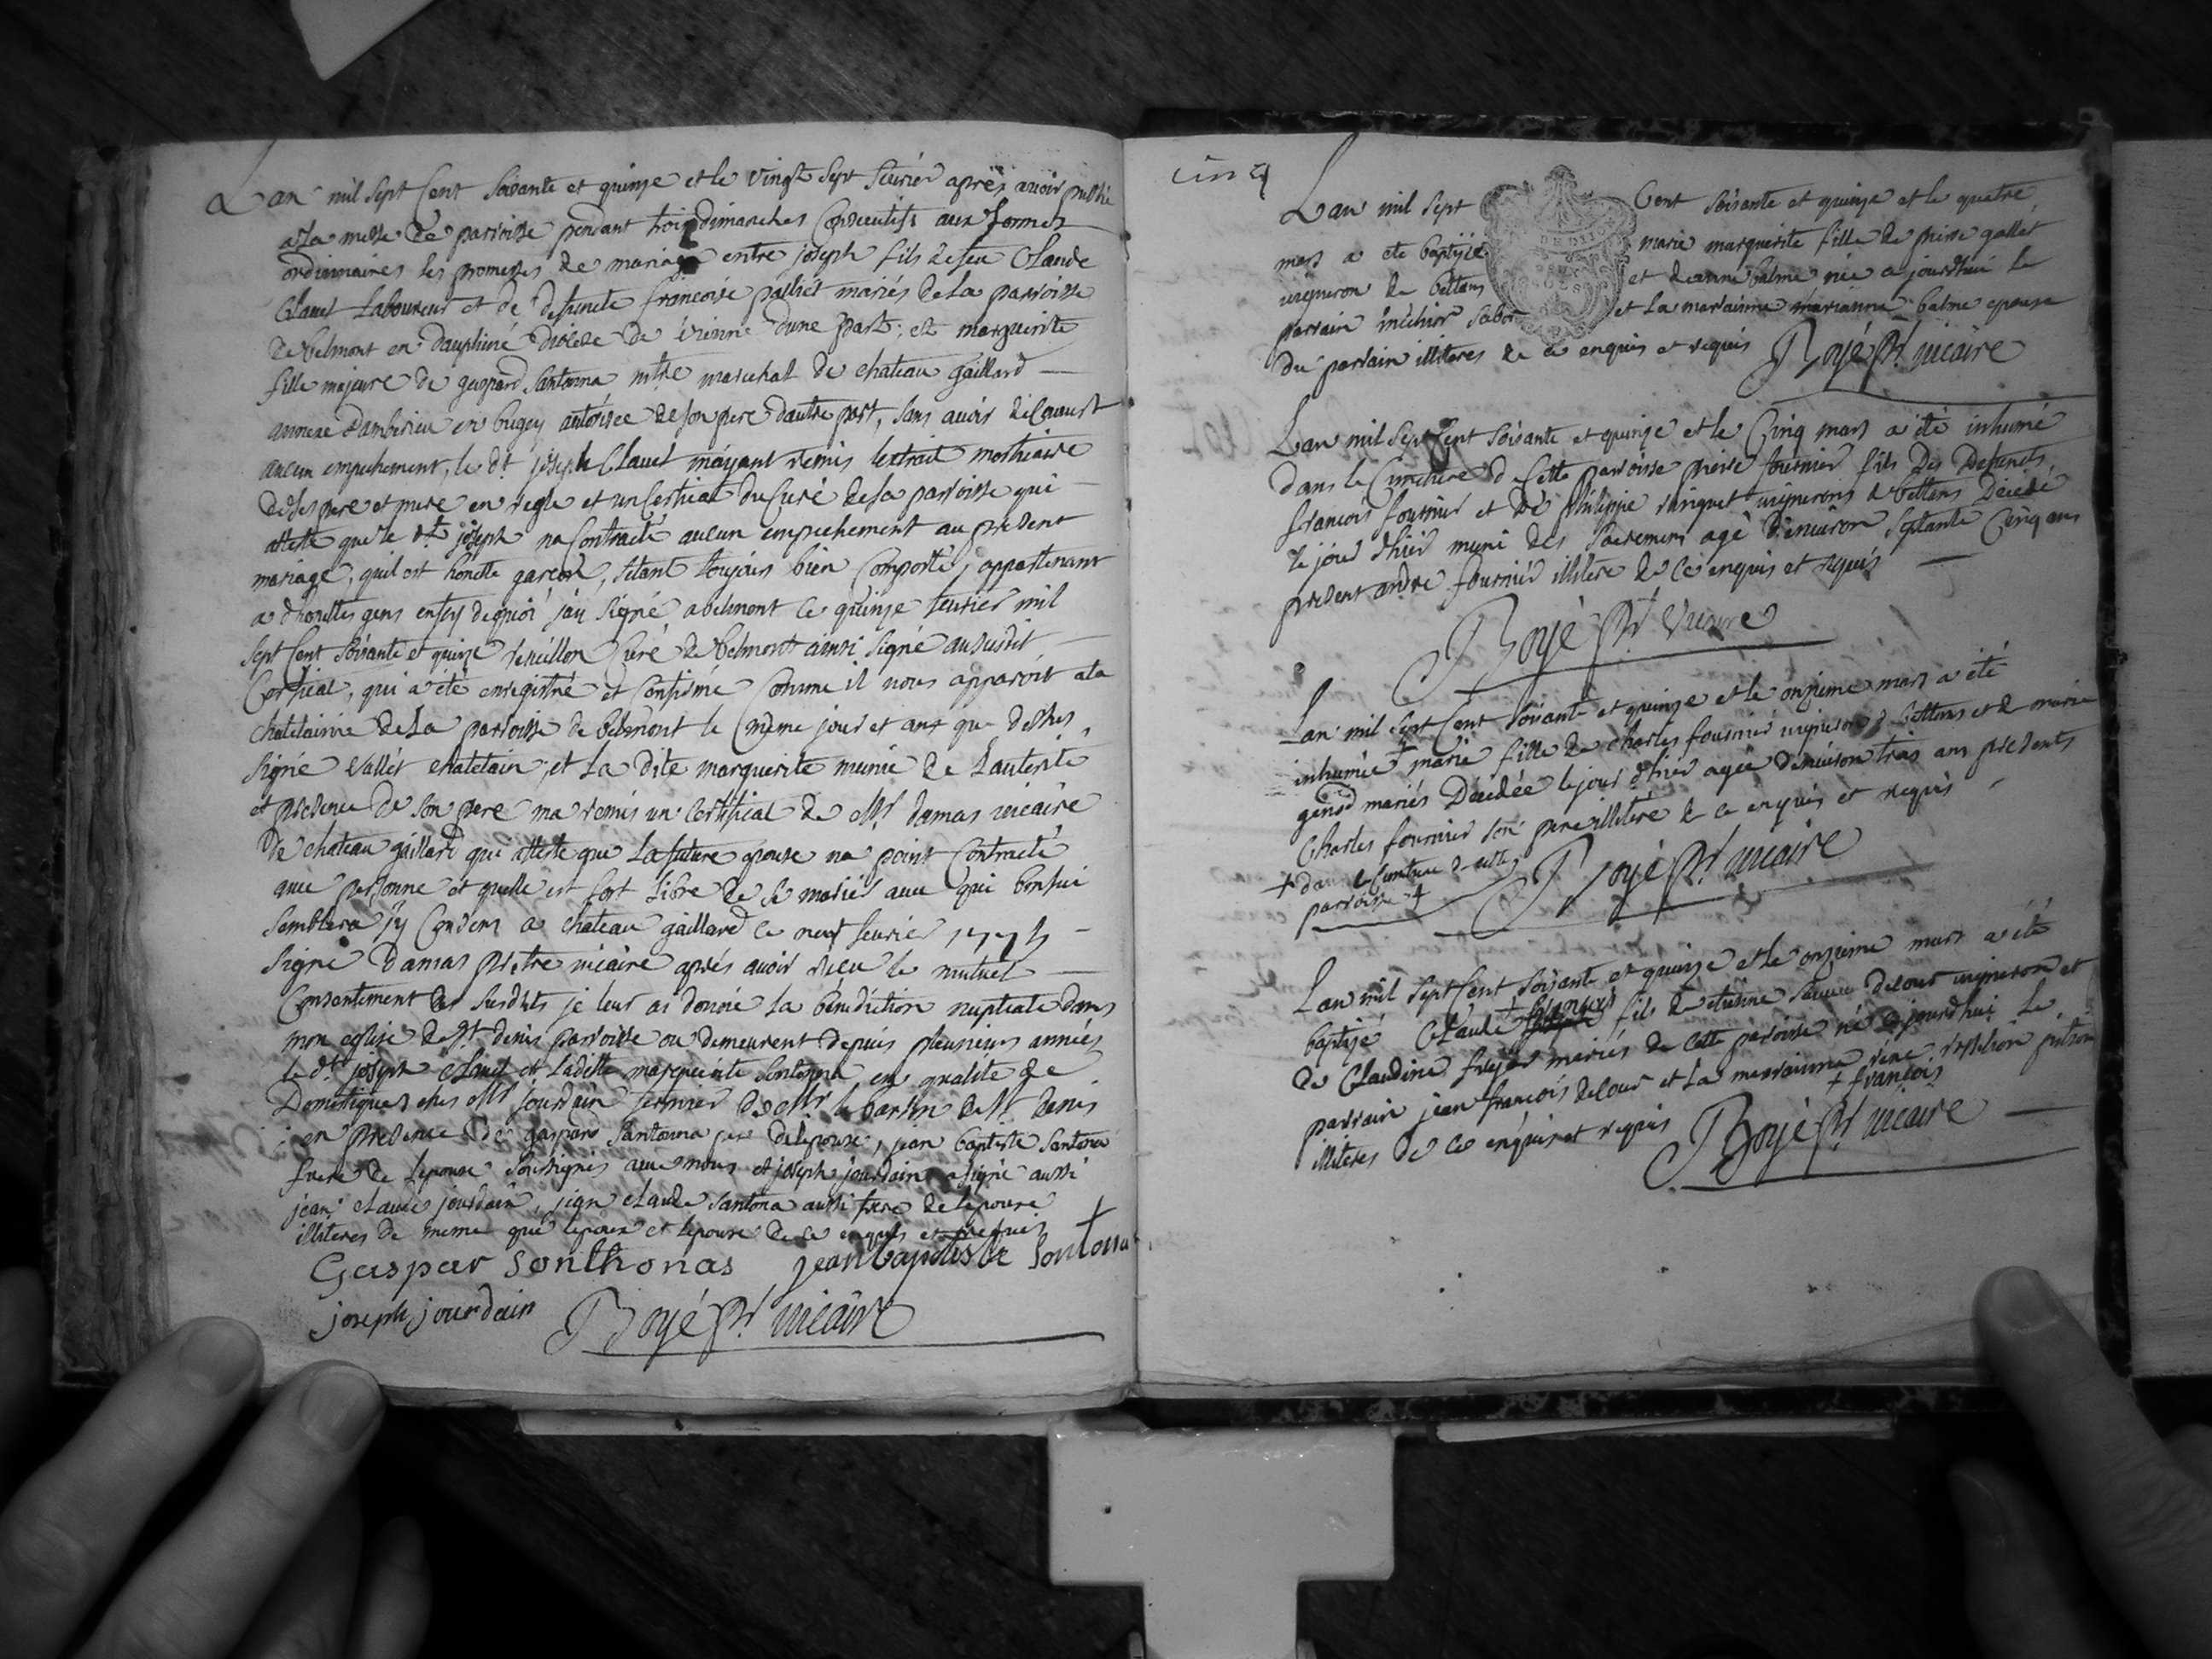 Lan mil sept Cent soixante et quinze et le vingt sept fevrier après avoir publié
a la messe de parroisse pendant trois dimanches Consecutifs aux formes
ordinnaires les promesses de mariage entre joseph fils de feu Claude
Clauel Laboureur et de defuncte francoise mariés de La parroisse
de belmont en dauphiné diocese de vienne dune part; et marguerite
fille majeure de gaspard Santonna mtre marechal de chateau gaillard
annexe dambérieu en bugey autorisee de son pere dautre part, sans avoir découvert
aucun empechement, le dt joseph Clauel mayant remis lextrait mortuaire
de ses pere et mere en regle et un Certificat du Curé de sa parroisse qui
atteste que le dt joseph na Contracté aucun empechement au present
mariage, quil est honette garcon, setant toujours bien Comporté, appartenant
a dhonettes gens en foy de quoi jai signé a belmont ce quinze feurier mil
sept Cent soixante et quinze Curé de belmont ainsi signé au susdit
Certificat, qui a été enregistré et Confirmé Comme il nous apparoit a la
chatelainie de La parroisse de belmont le même jour et an que dessus,
signé vallét chatelain, et La dite marguerite munie de Lautorité
et presence de son pere ma remis un certificat de Mr damas vicaire
de chateau gaillard qui atteste que La future epouse na point Contracté
auec personne et quelle est fort Libre de se marier auec qui bon lui
semblera jy Consens a chateau gaillard ce neuf feurier 1775
signé damas pretre vicaire aprés avoir recu le mutuel
Consentement des susdits je leur ai donné La bénédiction nuptiale dans
mon eglise de st denis parroisse ou demeurent depuis plusieurs années
le dt joseph Clauel et Ladite marguerite Santonna en qualité de
Domestiques ches Mr jourdain fermier de Mr le baron de st denis
en presence de gaspard Santonna pere de lepouse, jean baptiste Santona
frere de lepouse soussignés auec nous et joseph jourdain a signé aussi
jean claude jourdain, jean claude Santona aussi frere de lepouse
illiteres de meme que lepoux et lepouse de ce enquis et requis
Gaspar Sonthonas jean baptiste Sontona
joseph jourdain Boyé ptr vicaire
cinq
Lan mil sept Cent soixante et quinze et le quatre
mars a ete baptisée marie marguerite fille de pierre gallet
vigneron de bettans et deanne balme née a jourdhui le
parrain melchior et La marrainne marianne balme epouse
du parrain illiteres de ce enquis et requis Boyé ptr vicaire
Lan mil sept Cent soixante et quinze et le Cinq mars a été inhumé
dans le Cimetiere de Cette parroisse pierre fournier fils des defuncts
francois fournier et de philippie ringuet vignerons de bettans Décédé
le jour dhier muni des sacremens agé denuiron septante Cinq ans
present andre fournier illitere de ce enquis et requis
Boyé ptr vicaire
Lan mil sept Cent soixante et quinze et le onzieme mars a été
inhumée + marie fille de charles fournier vigneron de bettans et de marie
mariés Décédée le jour dhier agée denuiron trois ans presents
Charles fournier son pere illitere de ce enquis et requis
+ dans le Cimetiere de cette
parroisse +
Boyé ptr vicaire
Lan mil sept Cent soixante et quinze et le onzieme mars a été
baptisé Claude + francois fils de etienne delour vigneron et
de Claudine mariés de cette paroisse né a jourdhui le
parrain jean francois delour et La marrainne
+ francois
illiteres de ce enquis et requis Boyé ptr vicaire